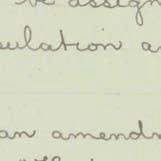 be assign
ulation a
an amendm